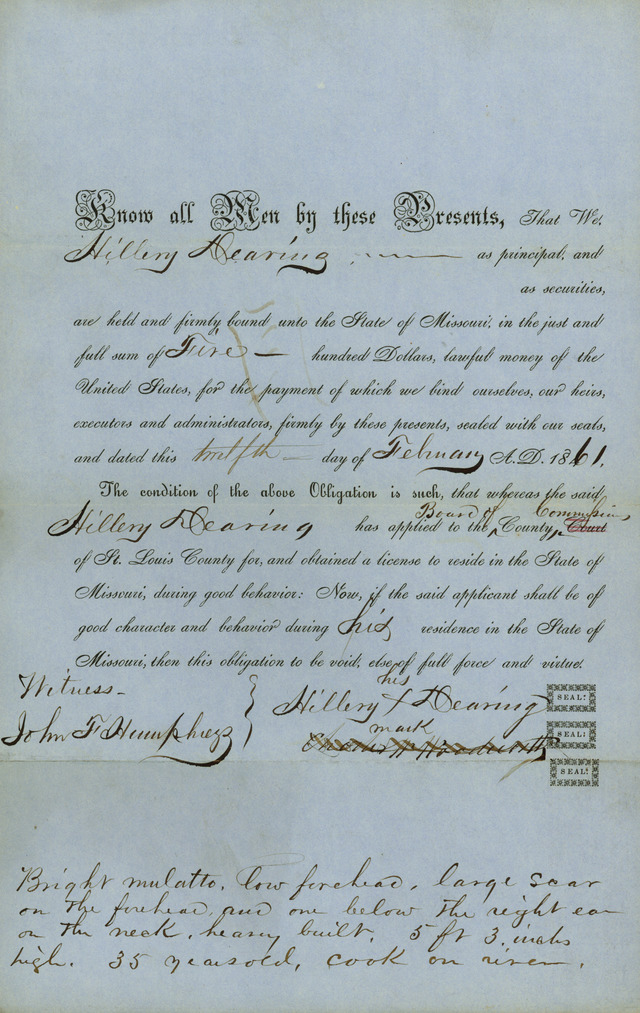 Know all Men by these Presents, That We,
Hillery Dearing as principal, and
as securities,
are held and firmly bound unto the State of Missouri, in the just and
full sum of Five — hundred Dollars, lawful money of the
United States, for the payment of which we bind ourselves, our heirs,
executors and administrators, firmly by these presents, sealed with our seals,
and dated this twelfth — day of February A. D. 1861.
The condition of the above Obligation is such, that whereas the said
Board of Commissioners
Hillery Dearing has applied to the County Court
of St. Louis County for, and obtained a license to reside in the State of
Missouri, during good behavior: Now, if the said applicant shall be of
good character and behavior during his residence in the State of
Missouri, then this obligation to be void, else of full force and virtue.
Witness -
his
Hillery X Dearing SEAL!
mark
John F Humphreys
SEAL!
SEAL!
Bright mulatto, low forehead, large scar
on the forehead, and one below the right ear
on the neck, heavy built, 5 ft 3 inches
high. 35 years old, cook on river.